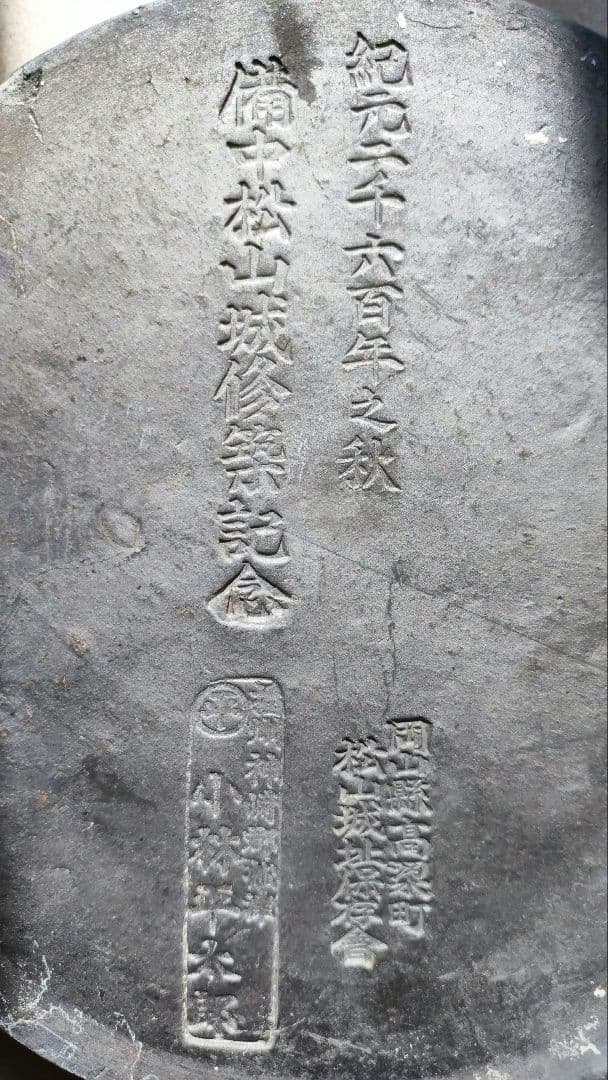 紀元二千六百年之秋
備中松山城修築記念
岡山縣高梁町
松山城址保存會
小林平太郎